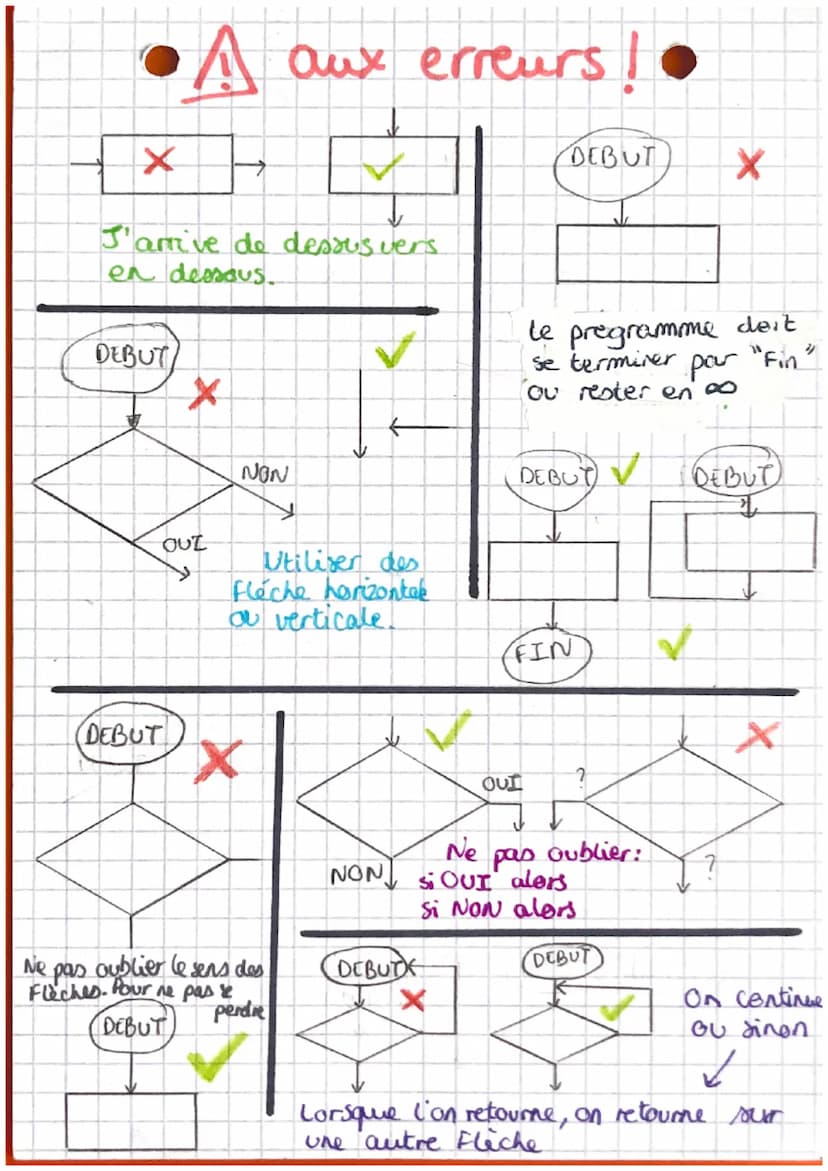 ⚠ aux erreurs !
J'arrive de dessus vers
en dessous.
DEBUT
Le programme doit
se terminer par "Fin"
ou rester en ∞
DEBUT
NON
OUI
Utiliser des
flèche horizontale
ou verticale.
DEBUT
DEBUT
FIN
DEBUT
Ne pas oublier le sens des
Flèches. Pour ne pas se
perdre
DEBUT
OUI
NON
?
?
Ne pas oublier:
si OUI alors
si NON alors
DEBUT
DEBUT
On continue
ou sinon
Lorsque l'on retourne, on retourne sur
une autre Flèche